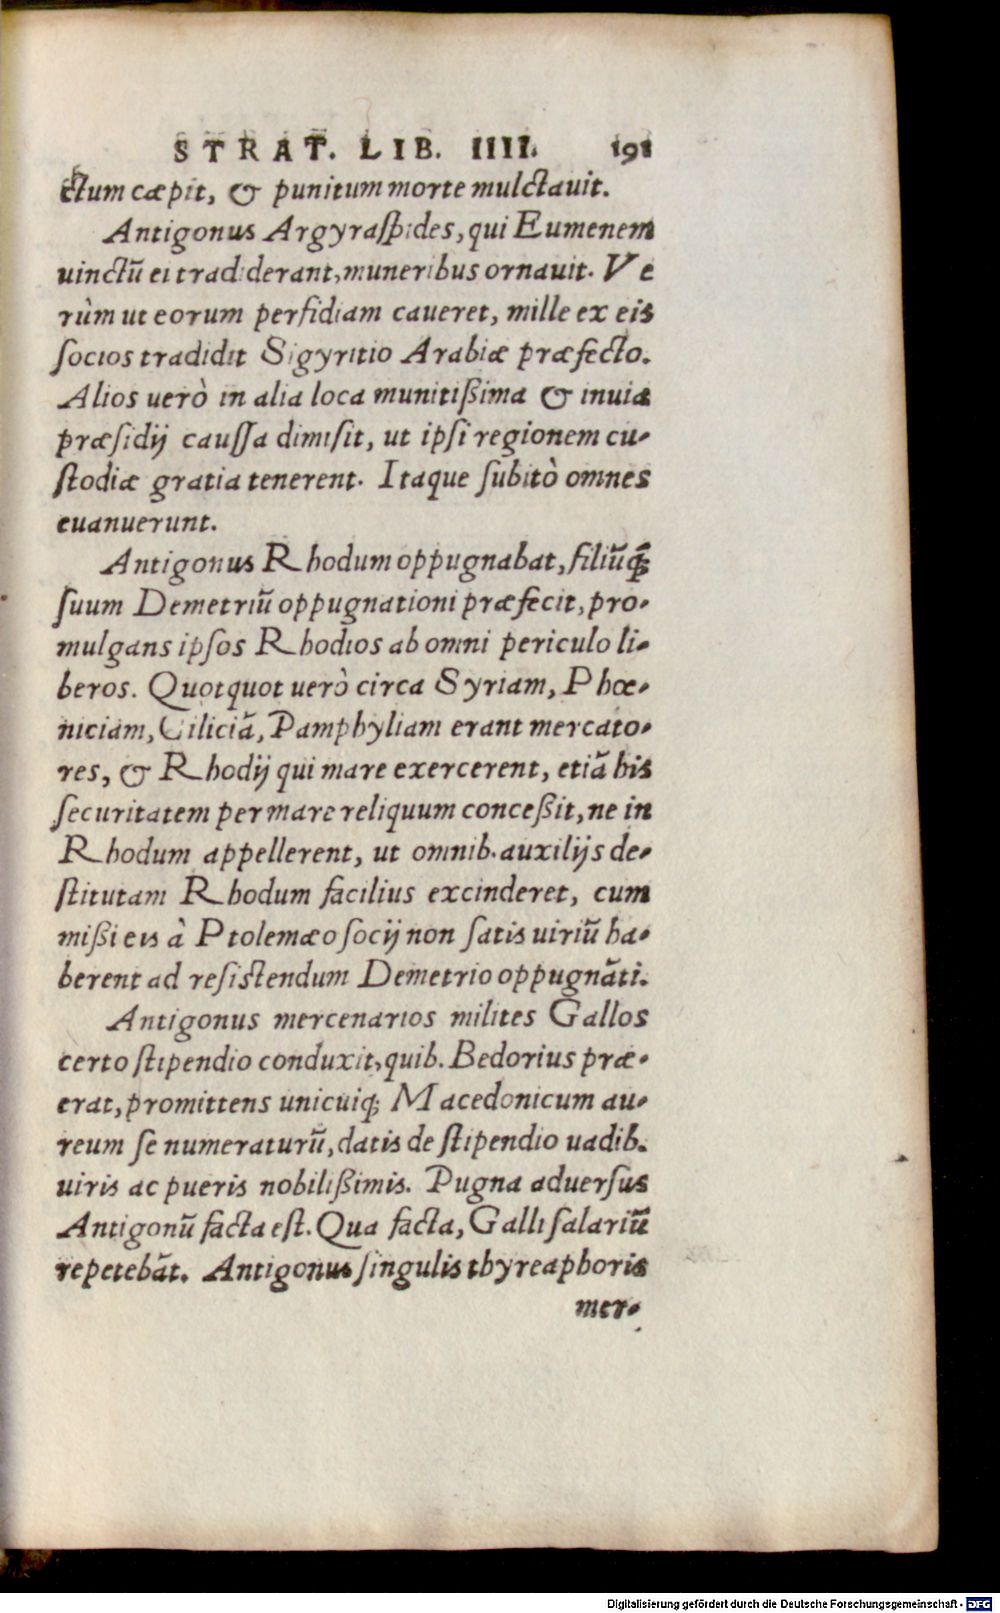 STRAT. LIB. IIII. 191
ctum cæpit, & punitum morte mulctauit.
Antigonus Argyraspides, qui Eumenem
uinctũ ei tradiderant, muneribus ornauit. Ve
rùm ut eorum perfidiam caueret, mille ex eis
socios tradidit Sigyritio Arabiæ præfecto.
Alios uerò in alia loca munitißima & inuia
præsidij caussa dimisit, ut ipsi regionem cu-
stodiæ gratia tenerent. Itaque subitò omnes
euanuerunt.
Antigonus Rhodum oppugnabat, filiũq́;
suum Demetriũ oppugnationi præfecit, pro-
mulgans ipsos Rhodios ab omni periculo li-
beros. Quotquot uerò circa Syriam, Phœ-
niciam, Ciliciã, Pamphyliam erant mercato-
res, & Rhodij qui mare exercerent, etiã his
securitatem per mare reliquum conceßit, ne in
Rhodum appellerent, ut omnib. auxilijs de-
stitutam Rhodum facilius excinderet, cum
mißi eis à Ptolemæo socij non satis uiriũ ha-
berent ad resistendum Demetrio oppugnãti.
Antigonus mercenarios milites Gallos
certo stipendio conduxit, quib. Bedorius præ-
erat, promittens unicuiq; Macedonicum au-
reum se numeraturũ, datis de stipendio uadib.
uiris ac pueris nobilißimis. Pugna aduersus
Antigonũ facta est. Qua facta, Galli salariũ
repetebãt. Antigonus singulis thyreaphoris
mer-
Digitalisierung gefördert durch die Deutsche Forschungsgemeinschaft - DFG